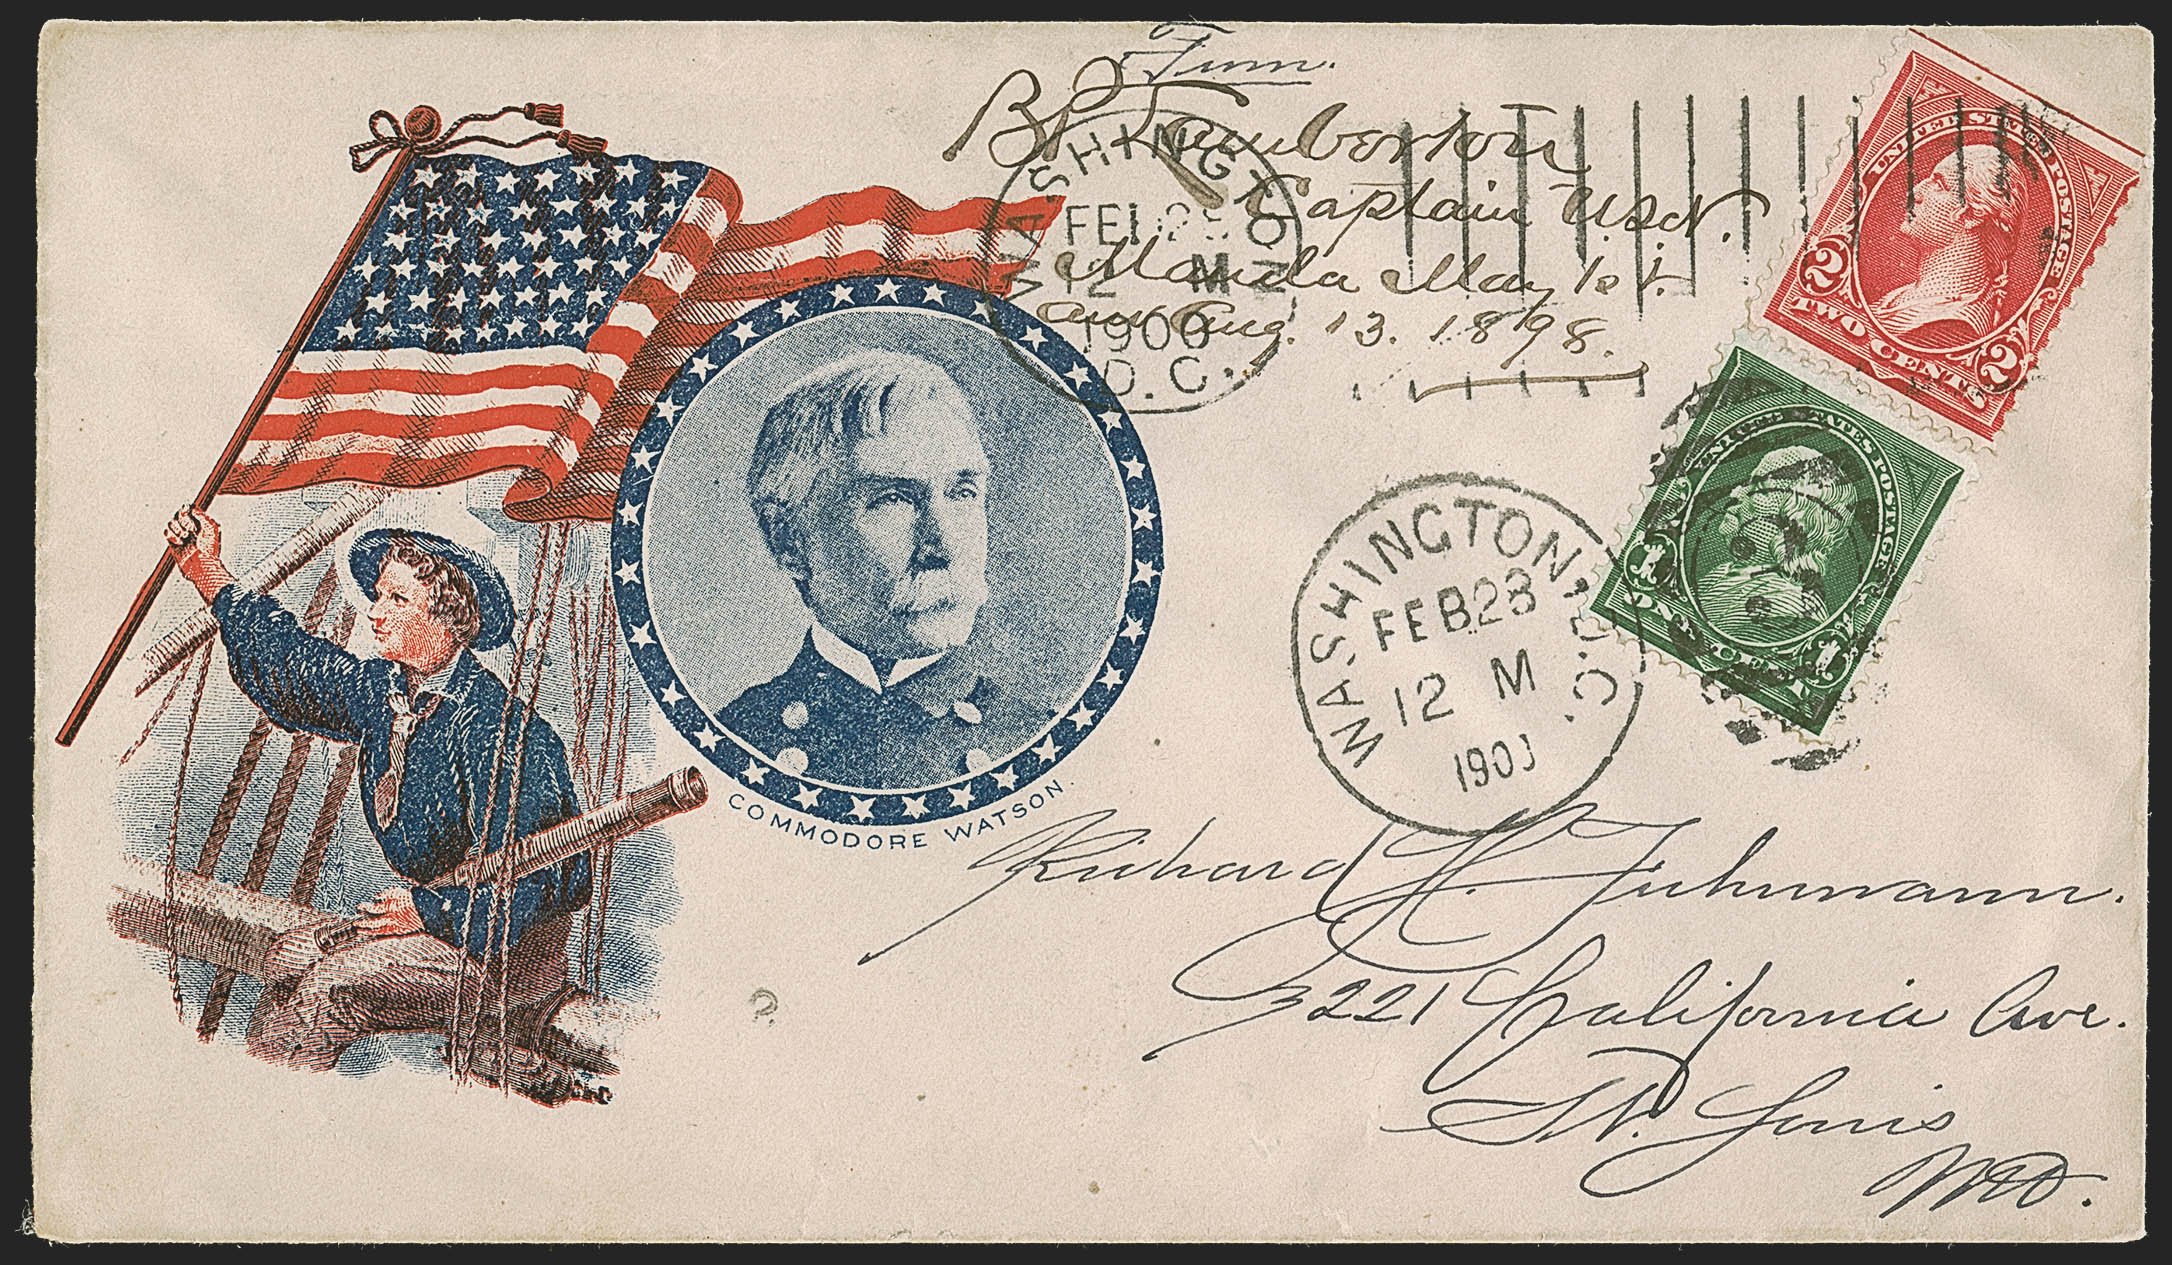 From.
B P Lamberton
Captain USN.
Manila May 1st.
and Aug. 13. 1898.
WASHINGTON
FEB 28
12 M
1900
D.C.
UNITED STATES POSTAGE
2 2
TWO CENTS
UNITED STATES POSTAGE
1 1
ONE CENT
WASHINGTON, D.C.
FEB 28
12 M
1900
COMMODORE WATSON.
Richard H. Fuhrmann.
3221 California Ave.
St. Louis
Mo.